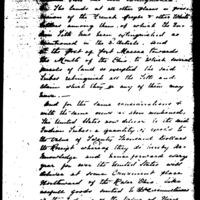 the lands at all other places in posses-
sion of the French people & other White
Settlers among them, of which the In-
dian Title has been extinguished as
mentioned in the 3d Article; and
the Post of fort Massac towards
the Mouth of the Ohio. to which several
parcels of land so excepted the said
Tribes relinquish all the Title and
Claim which they or any of them may
have.
And for the same considerations &
with the same views as above mentioned,
The United States now deliver to the said
Indian Tribes a quantity of goods to
the value of Twenty Thousand Dollars
the Receipt whereof they do hereby ac-
knowledge and henceforward every
year forever the United States will
deliver at some Convenient place
Northward of the River Ohio like
useful goods suited to the circumstances